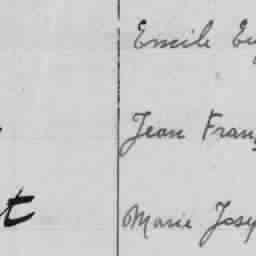 Emile Eu
Jean Fran
t
Marie Josep